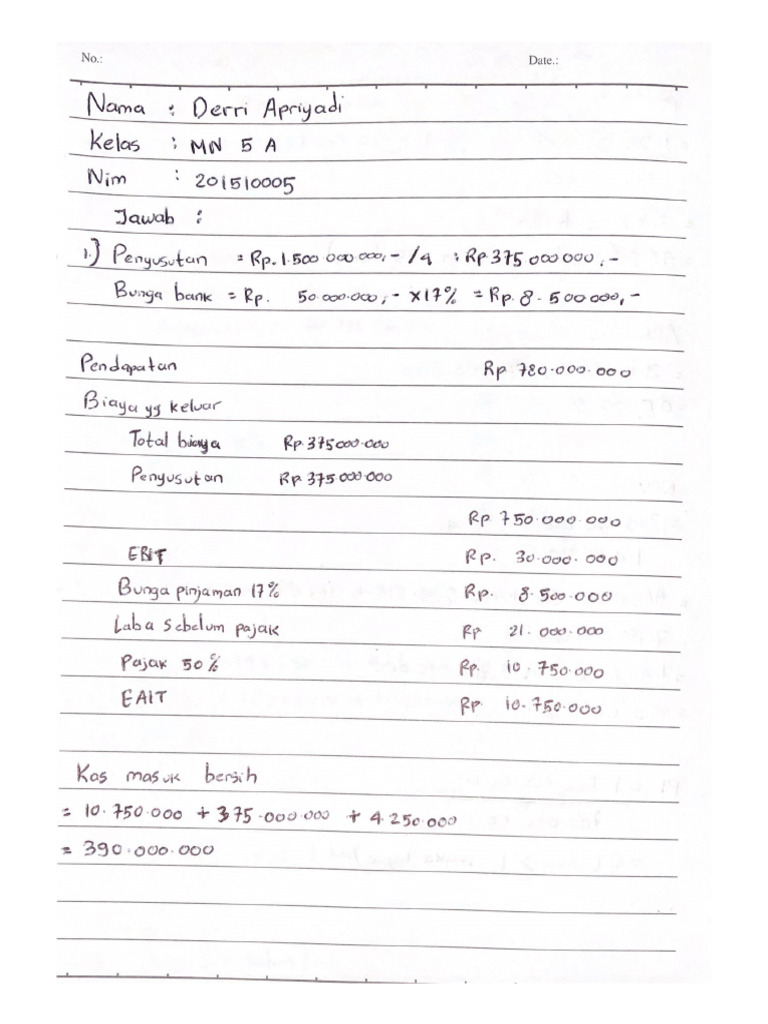 No.: Date.:
Nama : Derri Apriyadi
Kelas : MN 5 A
Nim : 201510005
Jawab :
1.) Penyusutan = Rp. 1.500 000 000,- /4 : Rp 375 000 000,-
Bunga bank = Rp. 50.000.000,- x 17% = Rp. 8.500 000,-
Pendapatan Rp 780.000.000
Biaya yg keluar
Total biaya Rp.375000.000
Penyusutan Rp 375 000.000
Rp 750.000.000
EBIT Rp. 30.000.000
Bunga pinjaman 17% Rp. 8.500.000
Laba sebelum pajak Rp 21.000.000
Pajak 50% Rp. 10.750.000
EAIT Rp. 10.750.000
Kas masuk bersih
= 10.750.000 + 375.000.000 + 4.250.000
= 390.000.000